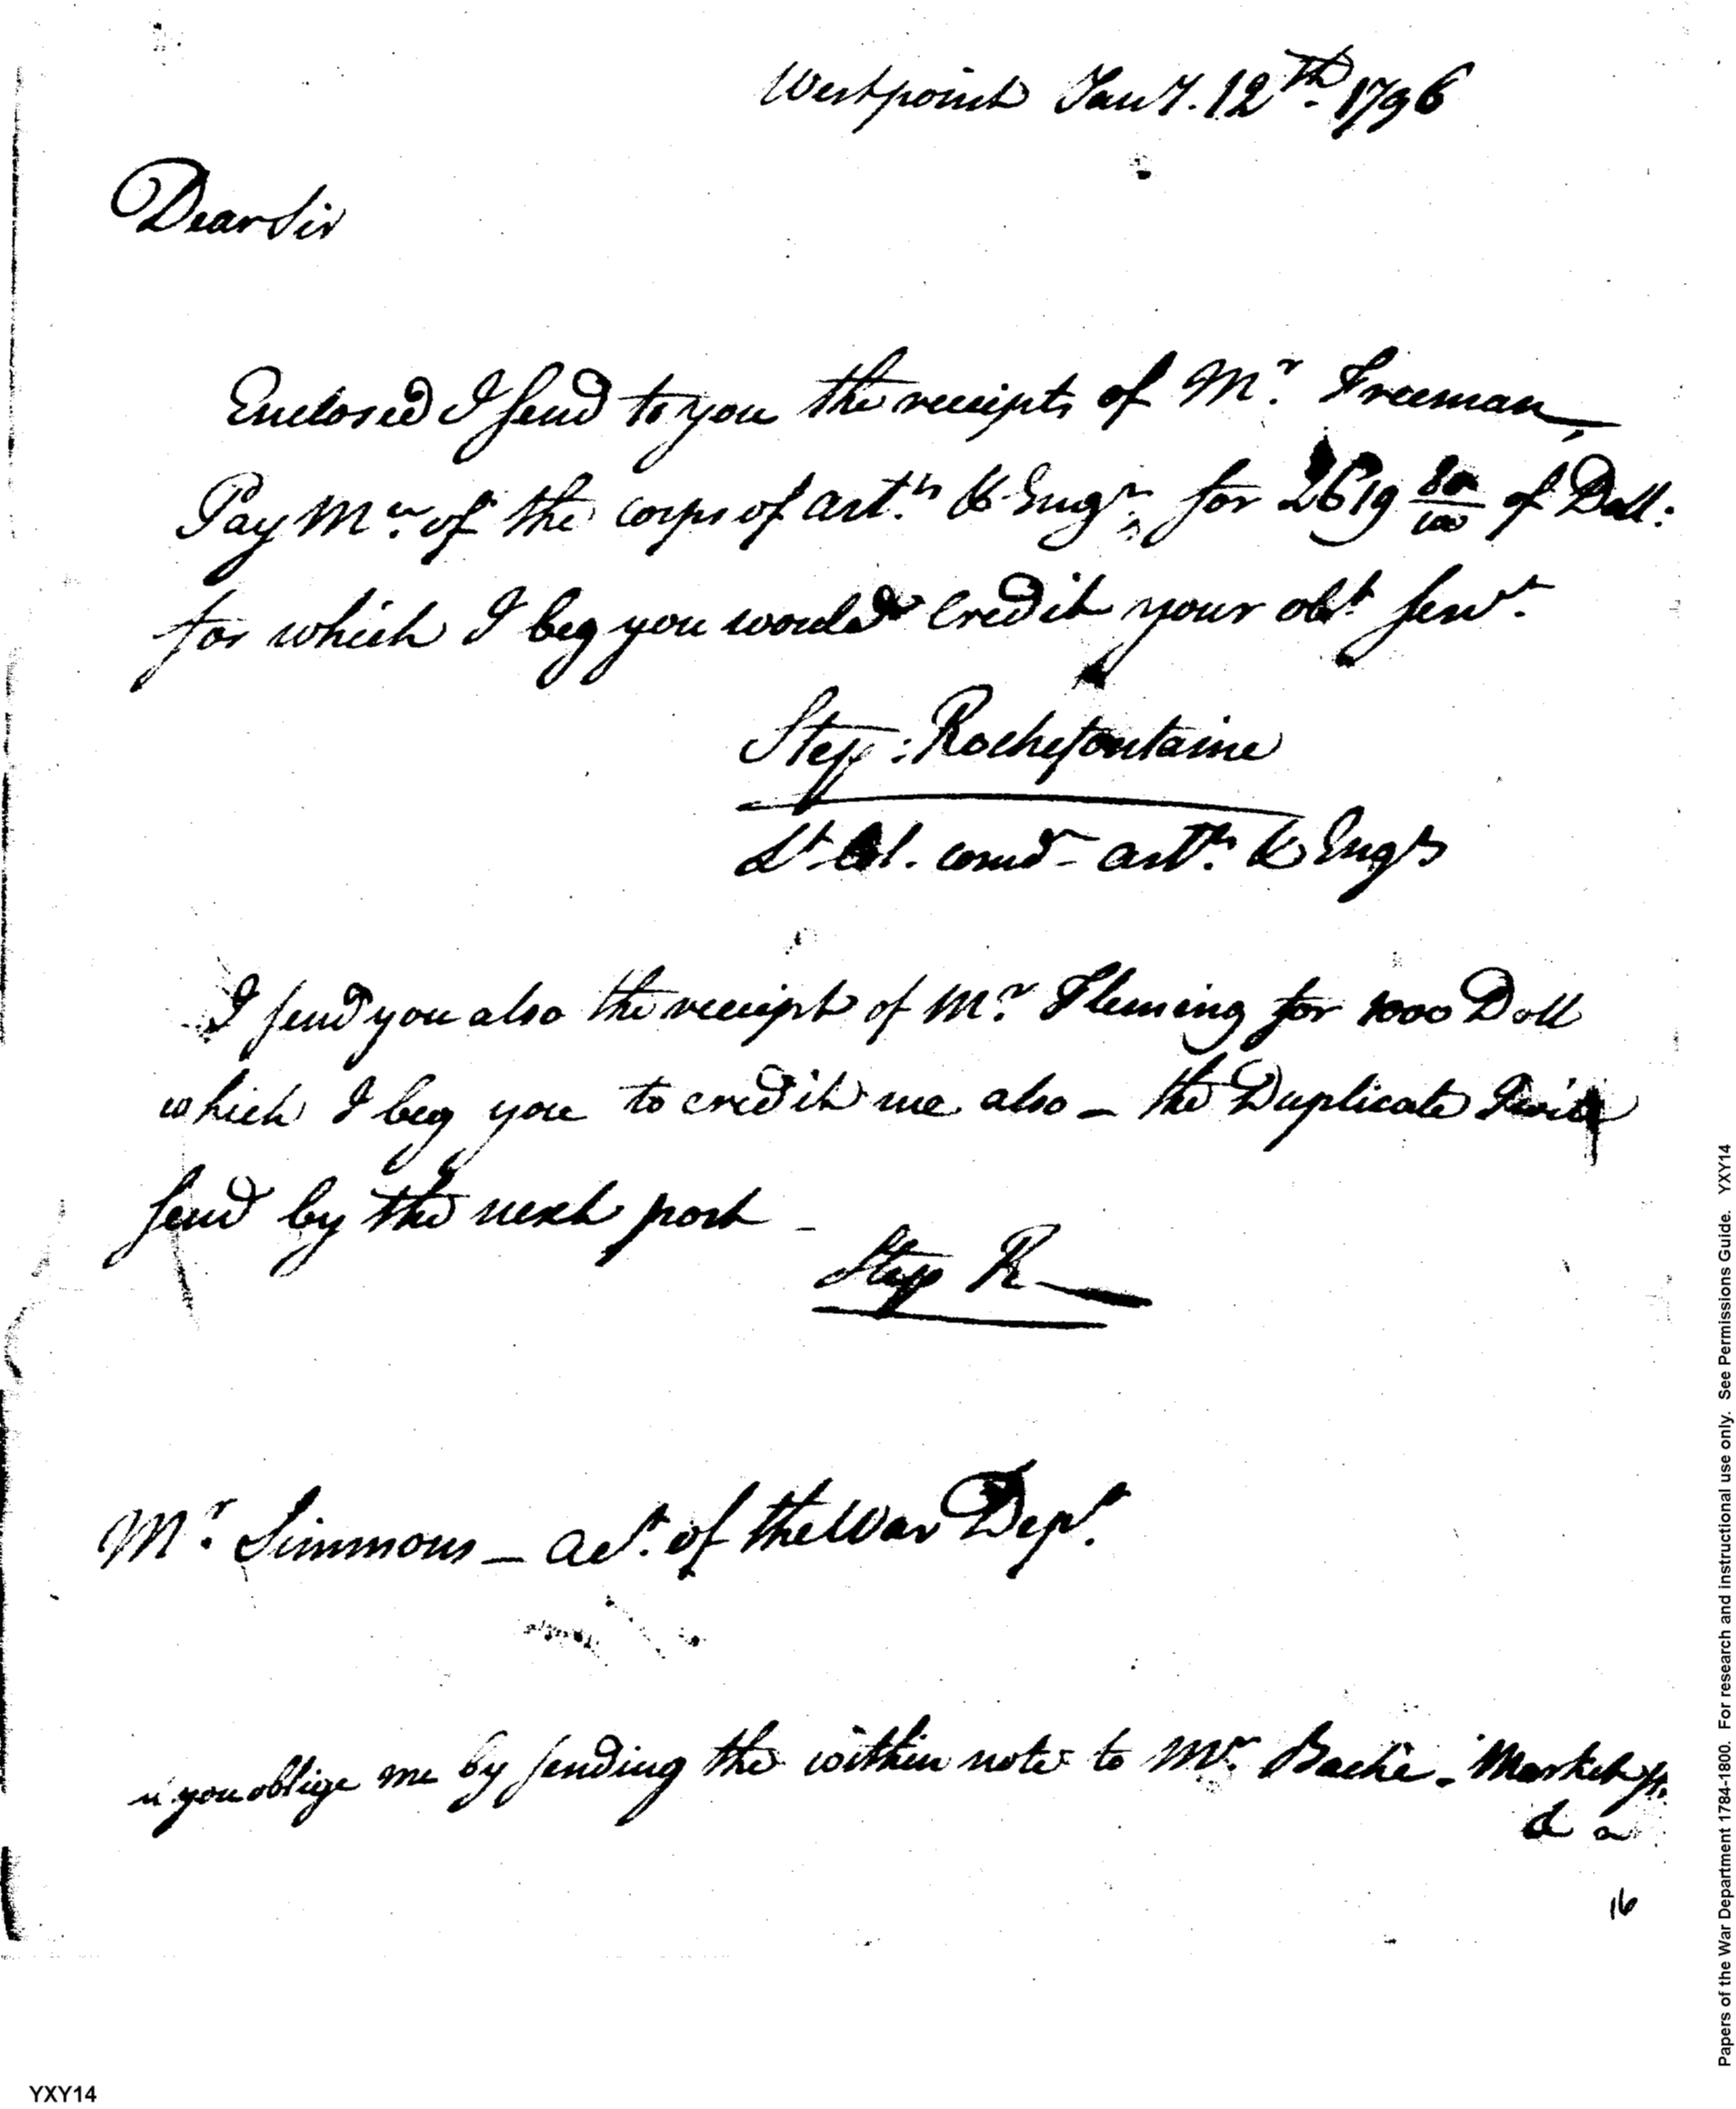 Westpoint Jany. 12th. 1796
Dear Sir
Enclosed I send to you the receipts of Mr. Freeman,
Pay Mr. of the corps of art.rs & Engrs, for 2619 80/100 of Doll:
for which I beg you would credit your obt. servt.
Step: Rochefontaine
Lt Col. comd- arts. & Engrs
I send you also the receipt of Mr. Fleming for 1000 Doll
which I beg you to credit me also - the Duplicate I will
send by the next post -
Step R
Mr. Simmons - act. of the War Dept.
you oblige me by sending the within note to Mr. Bache - Market st.
16
YXY14
Papers of the War Department 1784-1800. For research and instructional use only. See Permissions Guide. YXY14